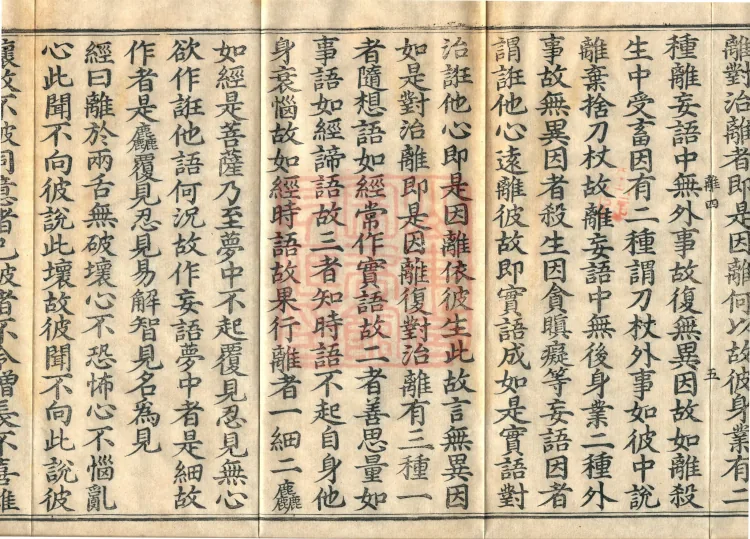 離對治離者即是因離何以故彼身業有二
離四 五
種離妄語中無外事故復無異因故如離殺
生中受畜因有二種謂刀杖外事如彼中說
離棄捨刀杖故離妄語中無後身業二種外
事故無異因者殺生因貪瞋癡等妄語因者
謂誑他心遠離彼故即實語成如是實語對
治誑他心即是因離依彼生此故言無異因
如是對治離即是因離復對治離有三種一
者隨想語如經常作實語故二者善思量如
事語如經諦語故三者知時語不起自身他
身衰惱故如經時語故果行離者一細二麤
如經是菩薩乃至夢中不起覆見忍見無心
欲作誑他語何況故作妄語夢中者是細故
作者是麤覆見忍見易解智見名為見
經曰離於兩舌無破壞心不恐怖心不惱亂
心此聞不向彼說此壞故彼聞不向此說彼
壞故不破同意者已破者不令增長不喜離